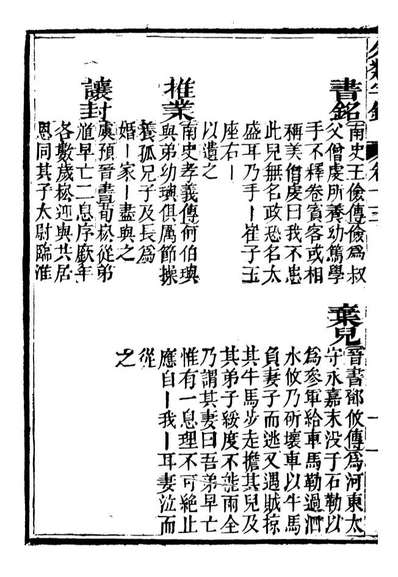 書銘
南史王儉傳儉爲叔
父僧虔所養幼篤學
手不釋卷賓客或相
稱美僧虔曰我不患
此兒無名政恐名太
盛耳乃手丨崔子玉
座右丨
以遺之
推業
南史孝義傳何伯璵
與弟幼璵俱厲節操
養孤兄子及長爲
婚丨家丨盡與之
讓封
虞預晉書荀崧從弟
馗早亡二息序廞年
各數歲崧迎與其居
恩同其子太尉臨淮
棄兒
晉書鄧攸傳爲河東太
守永嘉末沒于石勒以
爲參軍給車馬勒過泗
水攸乃斫壞車以牛馬
負妻子而逃又遇賊掠
其牛馬步走擔其兒及
其弟子綏度不能兩全
乃謂其妻曰吾弟早亡
惟有一息理不可絶止
應自丨我丨耳妻泣而
從
之